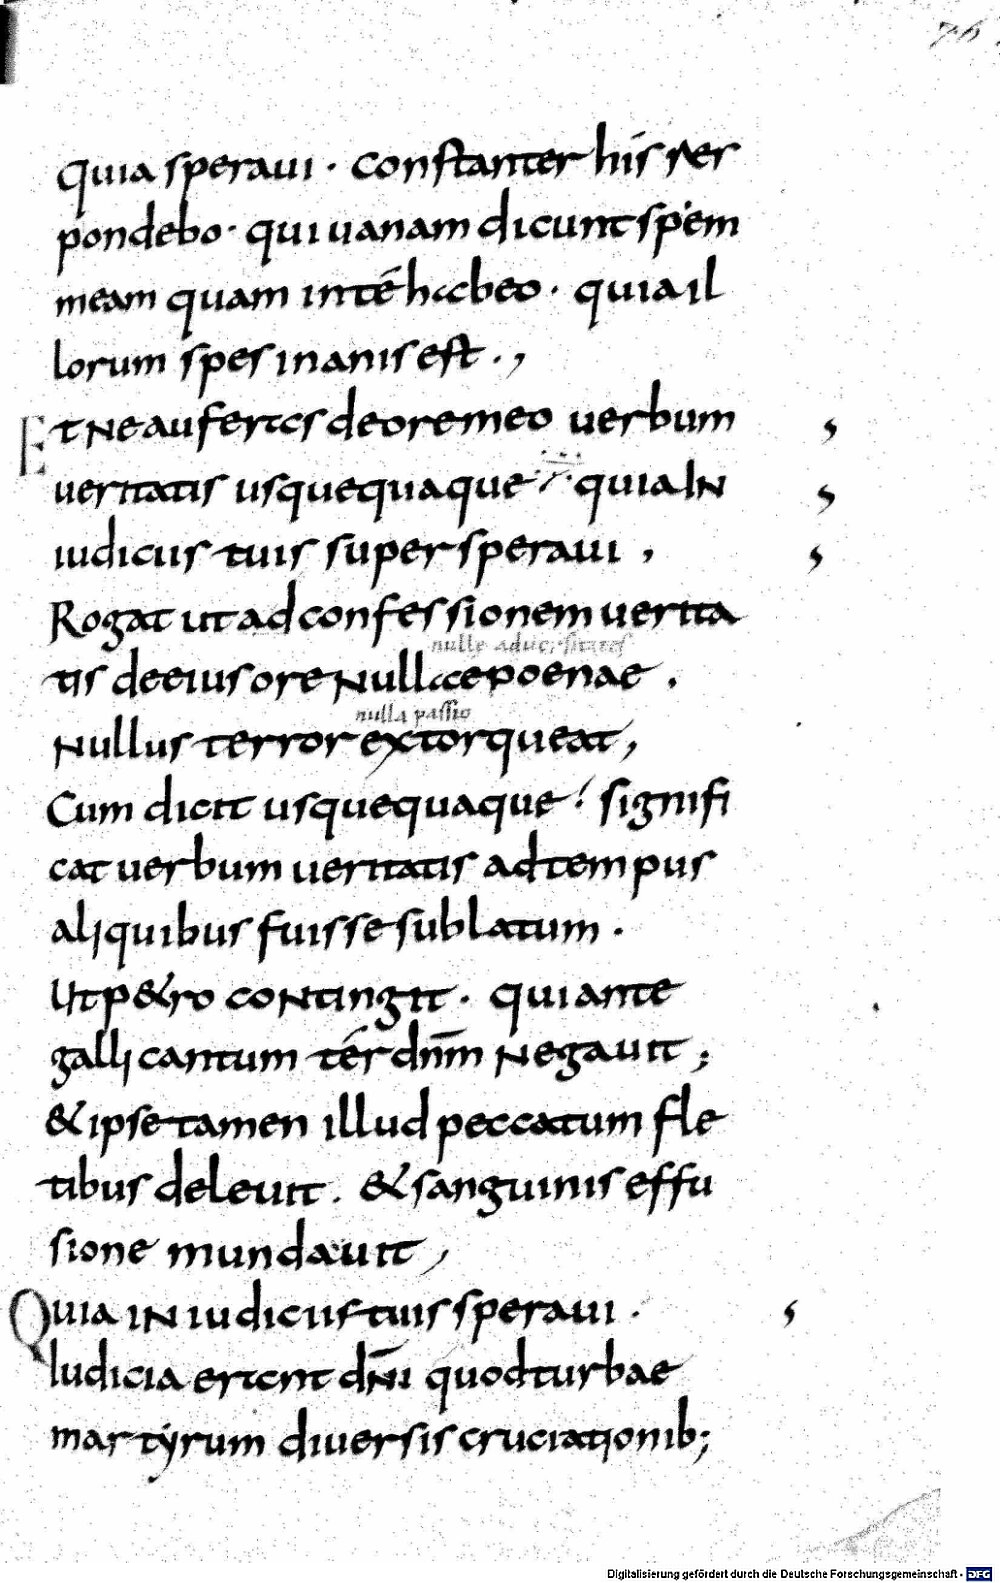 76
quia speraui · constanter his res
pondebo · qui uanam dicunt spem
meam quam in té habeo · quia il
lorum spes inanis est .,
Et ne auferas de ore meo uerbum
ueritatis usquequaque · quia in
iudiciis tuis supersperaui ,
Rogat ut ad confessionem uerita
nulle aduersitates
tis de eius ore nullae poenae .
nulla passio
Nullus terror extorqueat,
Cum dicit usquequaque! signifi
cat uerbum ueritatis ad tempus
aliquibus fuisse sublatum .
Ut p&ro contingit · qui ante
galli cantum tér dnm̄ negauit ;
& ipse tamen illud peccatum fle
tibus deleuit . & sanguinis effu
sione mundauit ,
Quia in iudiciis tuis speraui .
Iudicia erant dn̄i quod turbae
martyrum diuersis cruciationib;
Digitalisierung gefördert durch die Deutsche Forschungsgemeinschaft - DFG